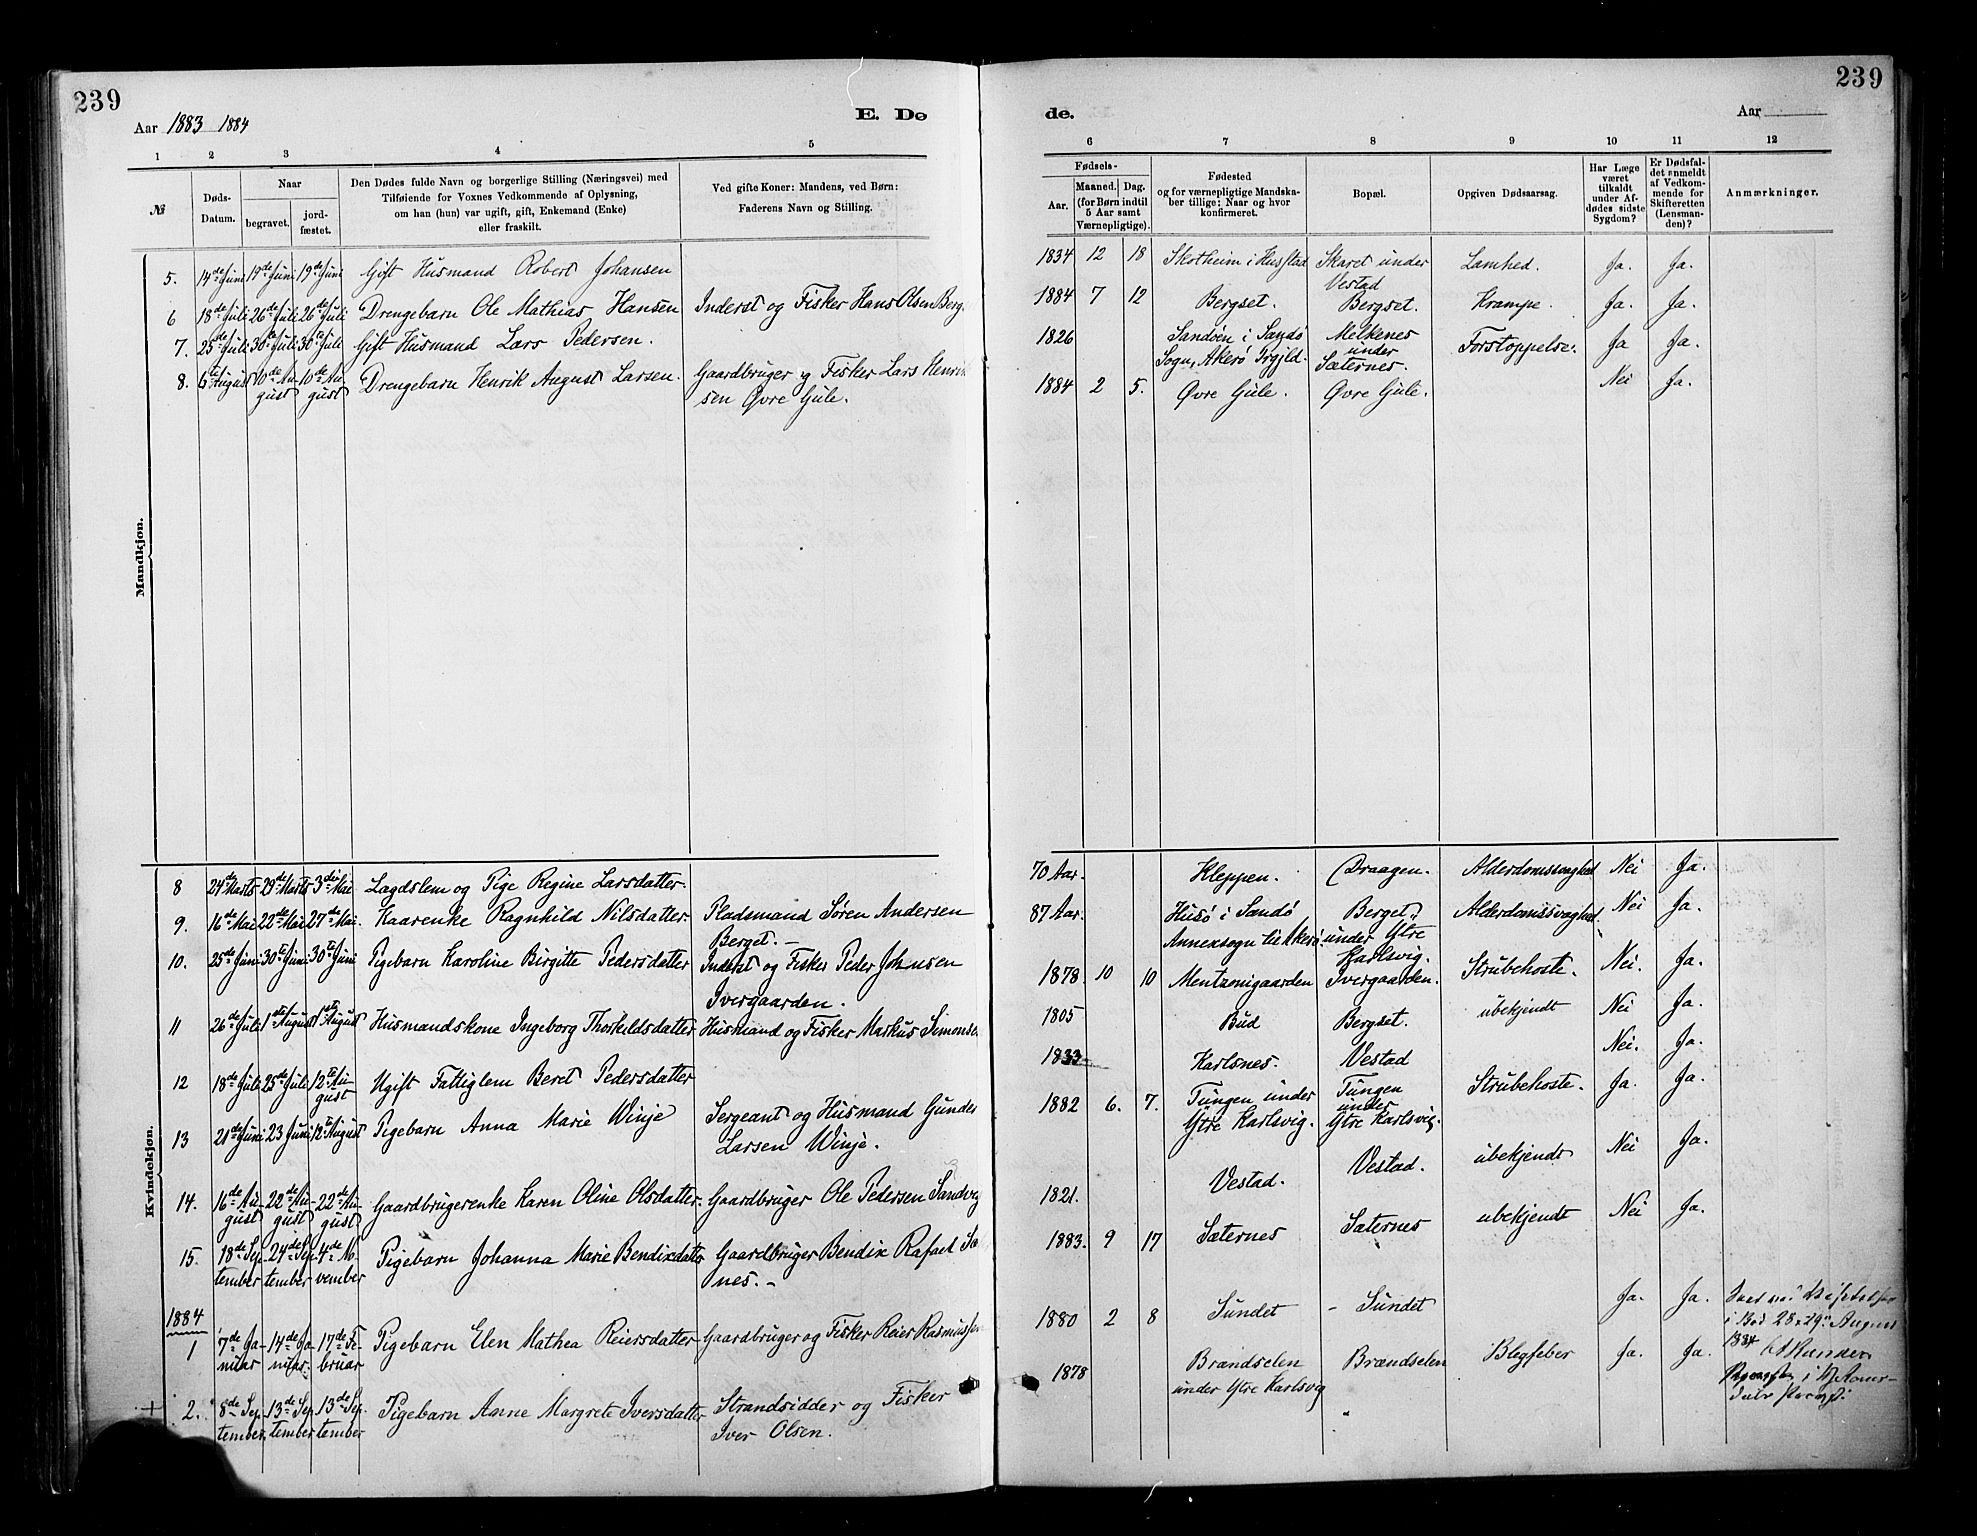 239
Aar 1883 1884
E. Dø
1 2 3 4 5
№
Døds-
Datum.
Naar
begravet.
jord-
fæstet.
Den Dødes fulde Navn og borgerlige Stilling (Næringsvei) med
Tilføiende for Voxnes Vedkommende af Oplysning,
om han (hun) var ugift, gift, Enkemand (Enke)
eller fraskilt.
Ved gifte Koner: Mandens, ved Børn:
Faderens Navn og Stilling.
Mandkjøn.
5. 14de Juni 19de Juni 19de Juni Gift Husmand Robert Johansen
6 18de Juli 26de Juli 26de Juli Drengebarn Ole Mathias Hansen Inderst og Fisker Hans Olsen Berg
7. 25de Juli 30te Juli 30te Juli Gift Husmand Lars Pedersen.
8. 6te August 10de Au- 10de Au- Drengebarn Henrik August Larsen. Gaardbruger og Fisker Lars Henrik
gust gust sen Øvre Gule.
Kvindekjøn.
8 24de Marts 29de Marts 3die Mai Lagdslem og Pige Regine Larsdatter.
9. 16de Mai 22de Mai 27de Mai. Kaarenke Ragnhild Nilsdatter Pladsmand Søren Andersen
Berget. -
10. 25de Juni 30te Juni 30te Juni Pigebarn Karoline Birgitte Pedersdatter Inderst og Fisker Peder Johnsen
Ivergaarden.
11 26de Juli 1ste August 1ste August Husmandskone Ingeborg Thorkildsdatter Husmand og Fisker Markus Simonse
12 18de Juli 25de Juli 12te Au- Ugift Fattiglem Beret Pedersdatter
gust
13 21de Juni 23 Juni 12te August Pigebarn Anna Marie Winje Sergeant og Husmand Gunder
Larsen Winje.
14. 16de Au- 22de Au- 22de Au- Gaardbrugerenke Karen Oline Olsdatter. Gaardbruger Ole Pedersen Sandvig
gust gust gust
15. 18de Sep- 24de Sep- 4de No- Pigebarn Johanna Marie Bendixdatter Gaardbruger Bendix Rafael Sæ
tember tember vember nes. -
1884
1 7de Ja- 14de Ja- 17de Fe- Pigebarn Elen Mathea Reiersdatter Gaardbruger og Fisker Reier Rasmussen
nuar nuar. bruar
+ 2. 8de Sep- 13de Sep- 13de Sep- Pigebarn Anne Margrete Iversdatter Strandsidder og Fisker
tember. tember tember Iver Olsen.
239
de.
Aar
6 7 8 9 10 11 12
Fødsels-
Aar.
Maaned. Dag.
(for Børn indtil
5 Aar samt
Værnepligtige).
Fødested
og for værnepligtige Mandska-
ber tillige: Naar og hvor
konfirmeret.
Bopæl.
Opgiven Dødsaarsag.
Har Læge
været
tilkaldt
under Af-
dødes sidste
Sygdom?
Er Dødsfal-
det anmeldt
af Vedkom-
mende for
Skifteretten
(Lensman-
den)?
Anmærkninger.
1834 12 18 Skotheim i Husstad Skaret under Lamhed. Ja. Ja.
Vestad
1884 7 12 Bergset. Bergset. Krampe. Ja. Ja.
1826 Sandøen i Sandø Melkenes Forstoppelse. Ja Ja.
Sogn, Akerø Prgjld. under
Sæternes.
1884 2 5. Øvre Gule. Øvre Gule. Nei Ja.
70 Aar. Kleppen. Draagen. Alderdomssvaghed Nei Ja.
87 Aar. Husø i Sandø Berget Alderdomssvaghed. Nei Ja.
Annexsogn til Akerø under Ytre
Karlsvig.
1878. 10 10 Mentzonigaarden Ivergaarden. Strubehoste. Nei. Ja.
1805 Bud Bergset. ubekjendt Nei Ja.
1833 Karlsnes. Vestad Nei. Ja.
1882 6. 7. Tungen under Tungen Strubehoste. Ja. Ja.
Ytre Karlsvig. under
Ytre Karlsvig.
1821. Vestad. Vestad. ubekjendt Nei Ja.
1883. 9 17 Sæternes Sæternes ubekjendt Nei Ja.
1880 2 8 Sundet - Sundet Ja. Ja.
i Bod 28 & 29 August
1884
1878 Brandselen Brandselen Blegfeber Ja. Ja.
under Ytre Karlsvig "